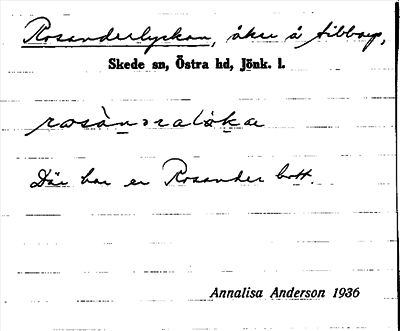 Rosanderlyckan, åker å Ribbarp,
Skede sn, Östra hd, Jönk. l.
Där har en Rosander bott.
Annalisa Anderson 1936